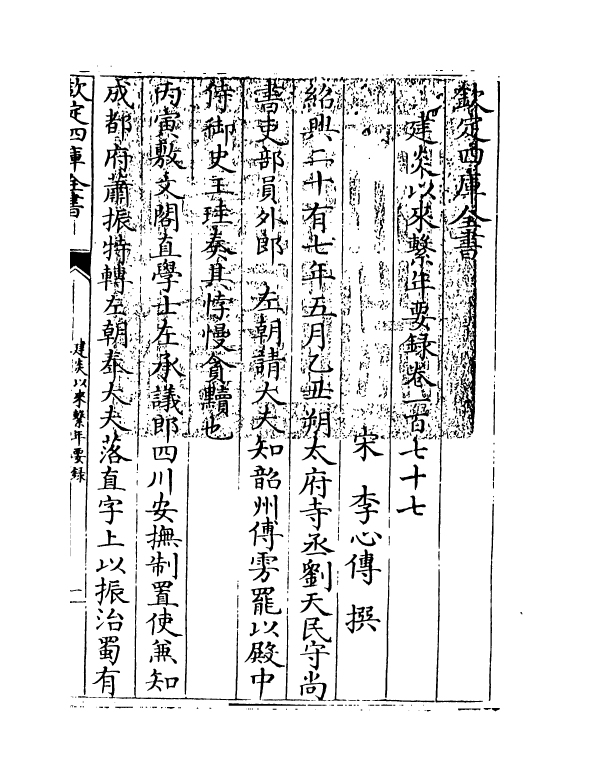 欽定四庫全書
建炎以來繫年要錄卷一百七十七
宋 李心傳 撰
紹興二十有七年五月乙丑朔太府寺丞劉天民守尚
書吏部員外郎 左朝請大夫知韶州傅雱罷以殿中
侍御史王珪奏其悖慢貪黷也
丙寅敷文閣直學士左承議郎四川安撫制置使兼知
成都府蕭振特轉左朝奉大夫落直字上以振治蜀有
欽定四庫全書
建炎以來繫年要錄
一